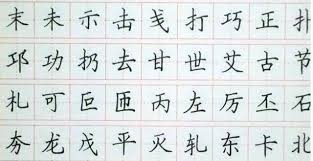 末未示击戋打巧正扑
邛功扔去甘世艾古节
札可叵匝丙左厉丕石
夯龙戊平灭轧东卡北